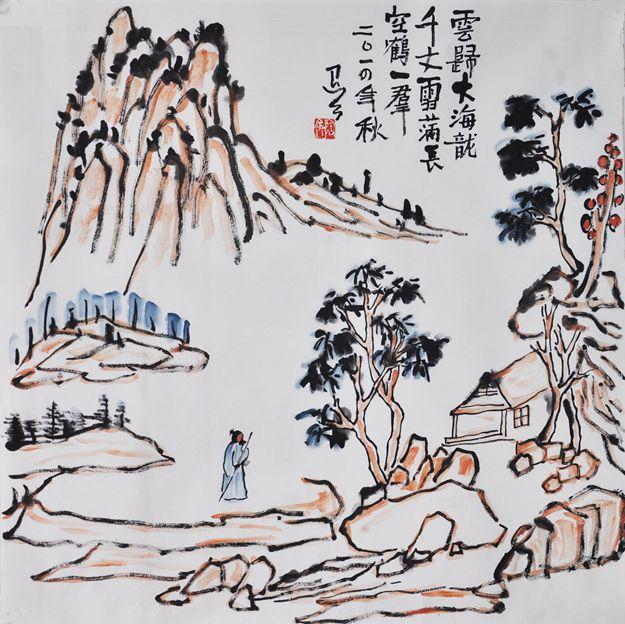 雲歸大海龍
千丈雪滿長
空鶴一羣
二〇一〇年秋